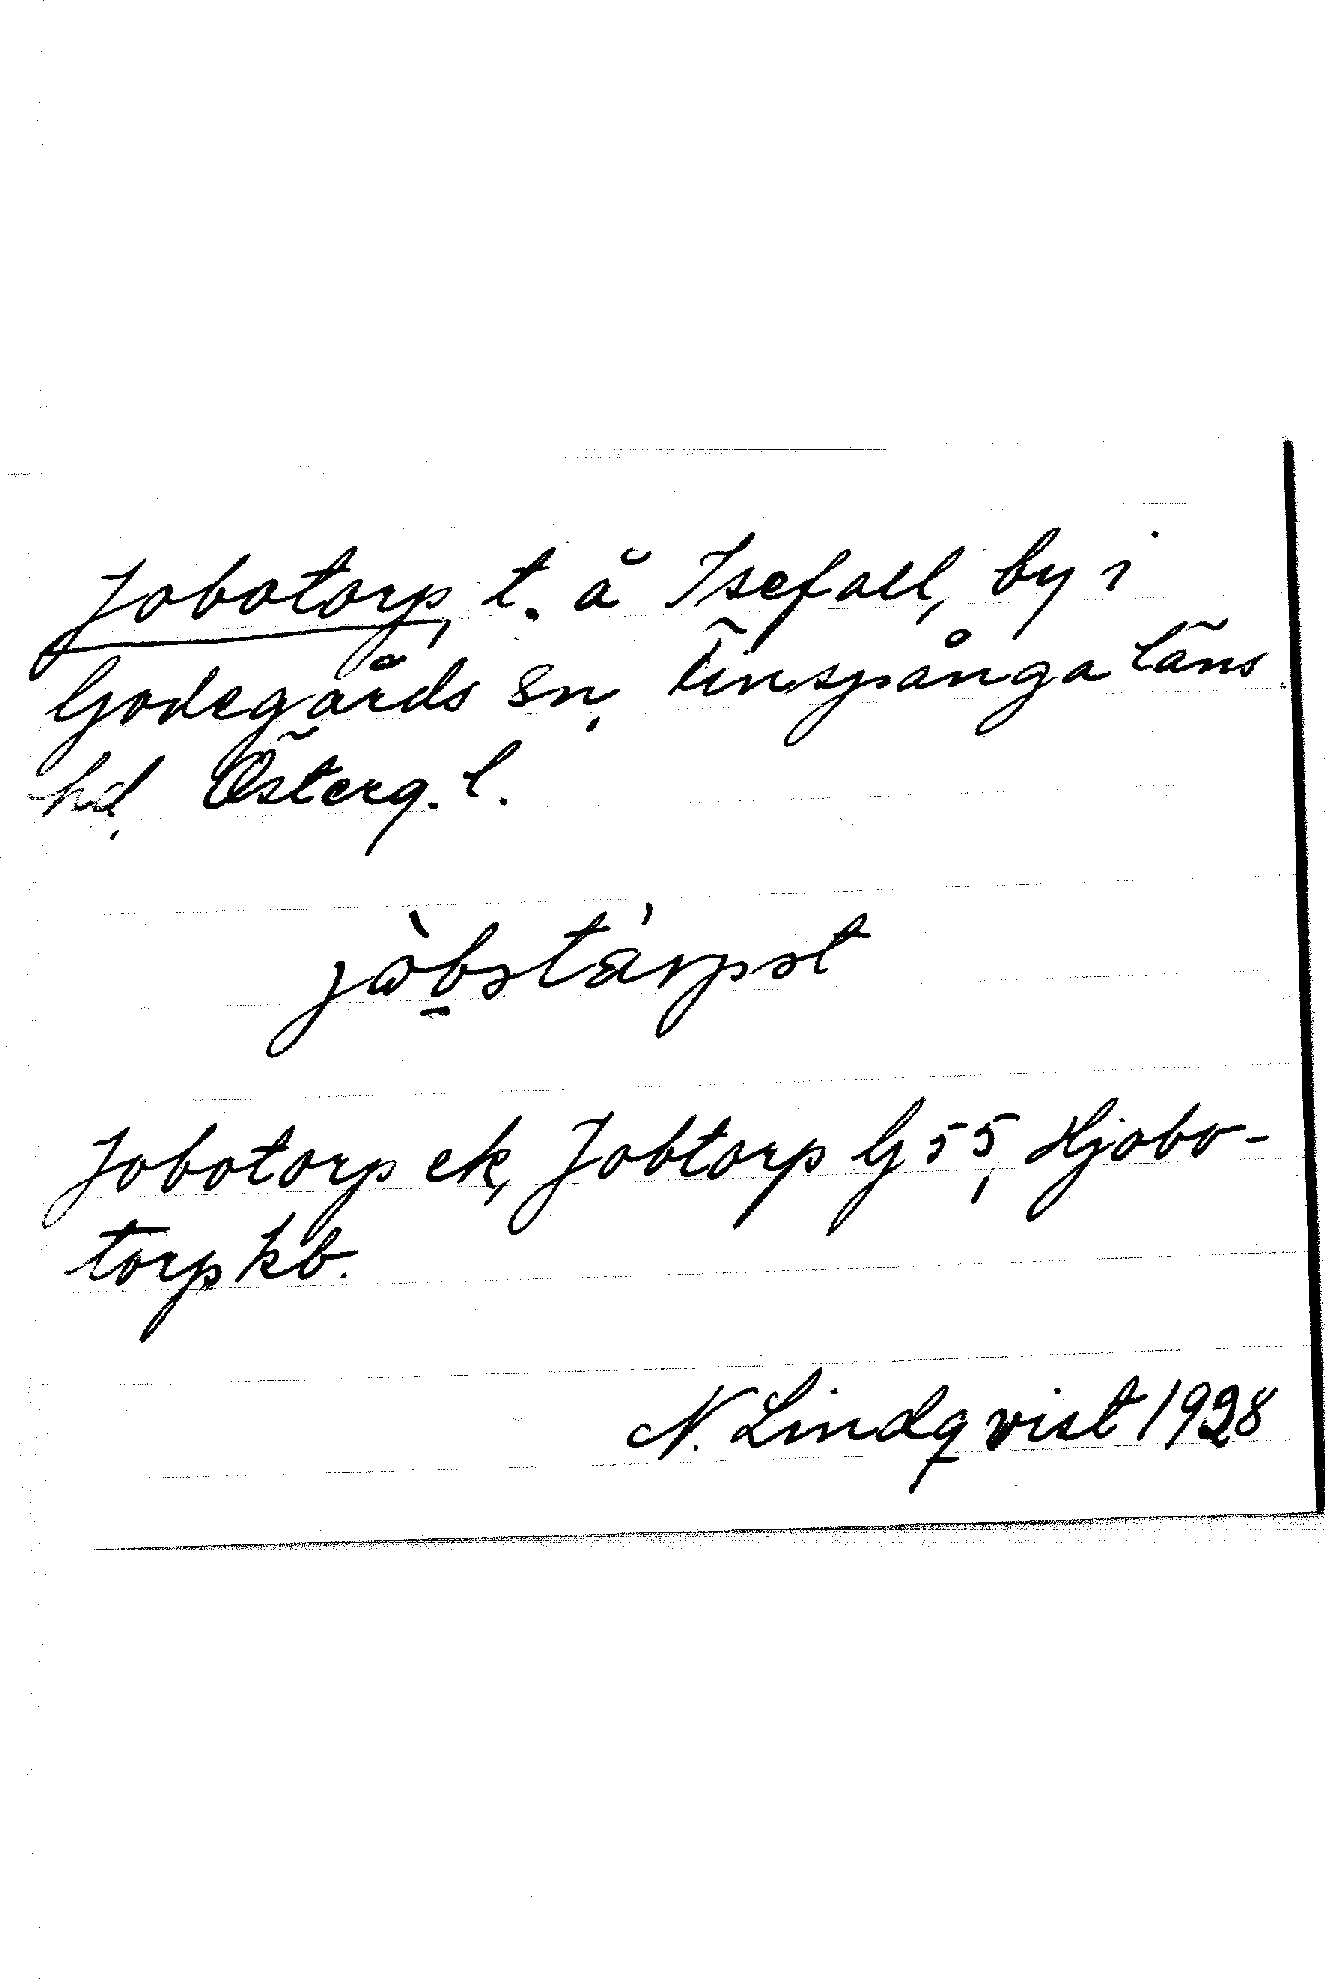 Jobotorp, t. å Isefall, by i
Godegårds sn, Finspånga läns
hd, Österg. l.
Jobotorp ek, Jobtorp G 55, Hjobo-
torp kb.
N. Lindqvist 1928